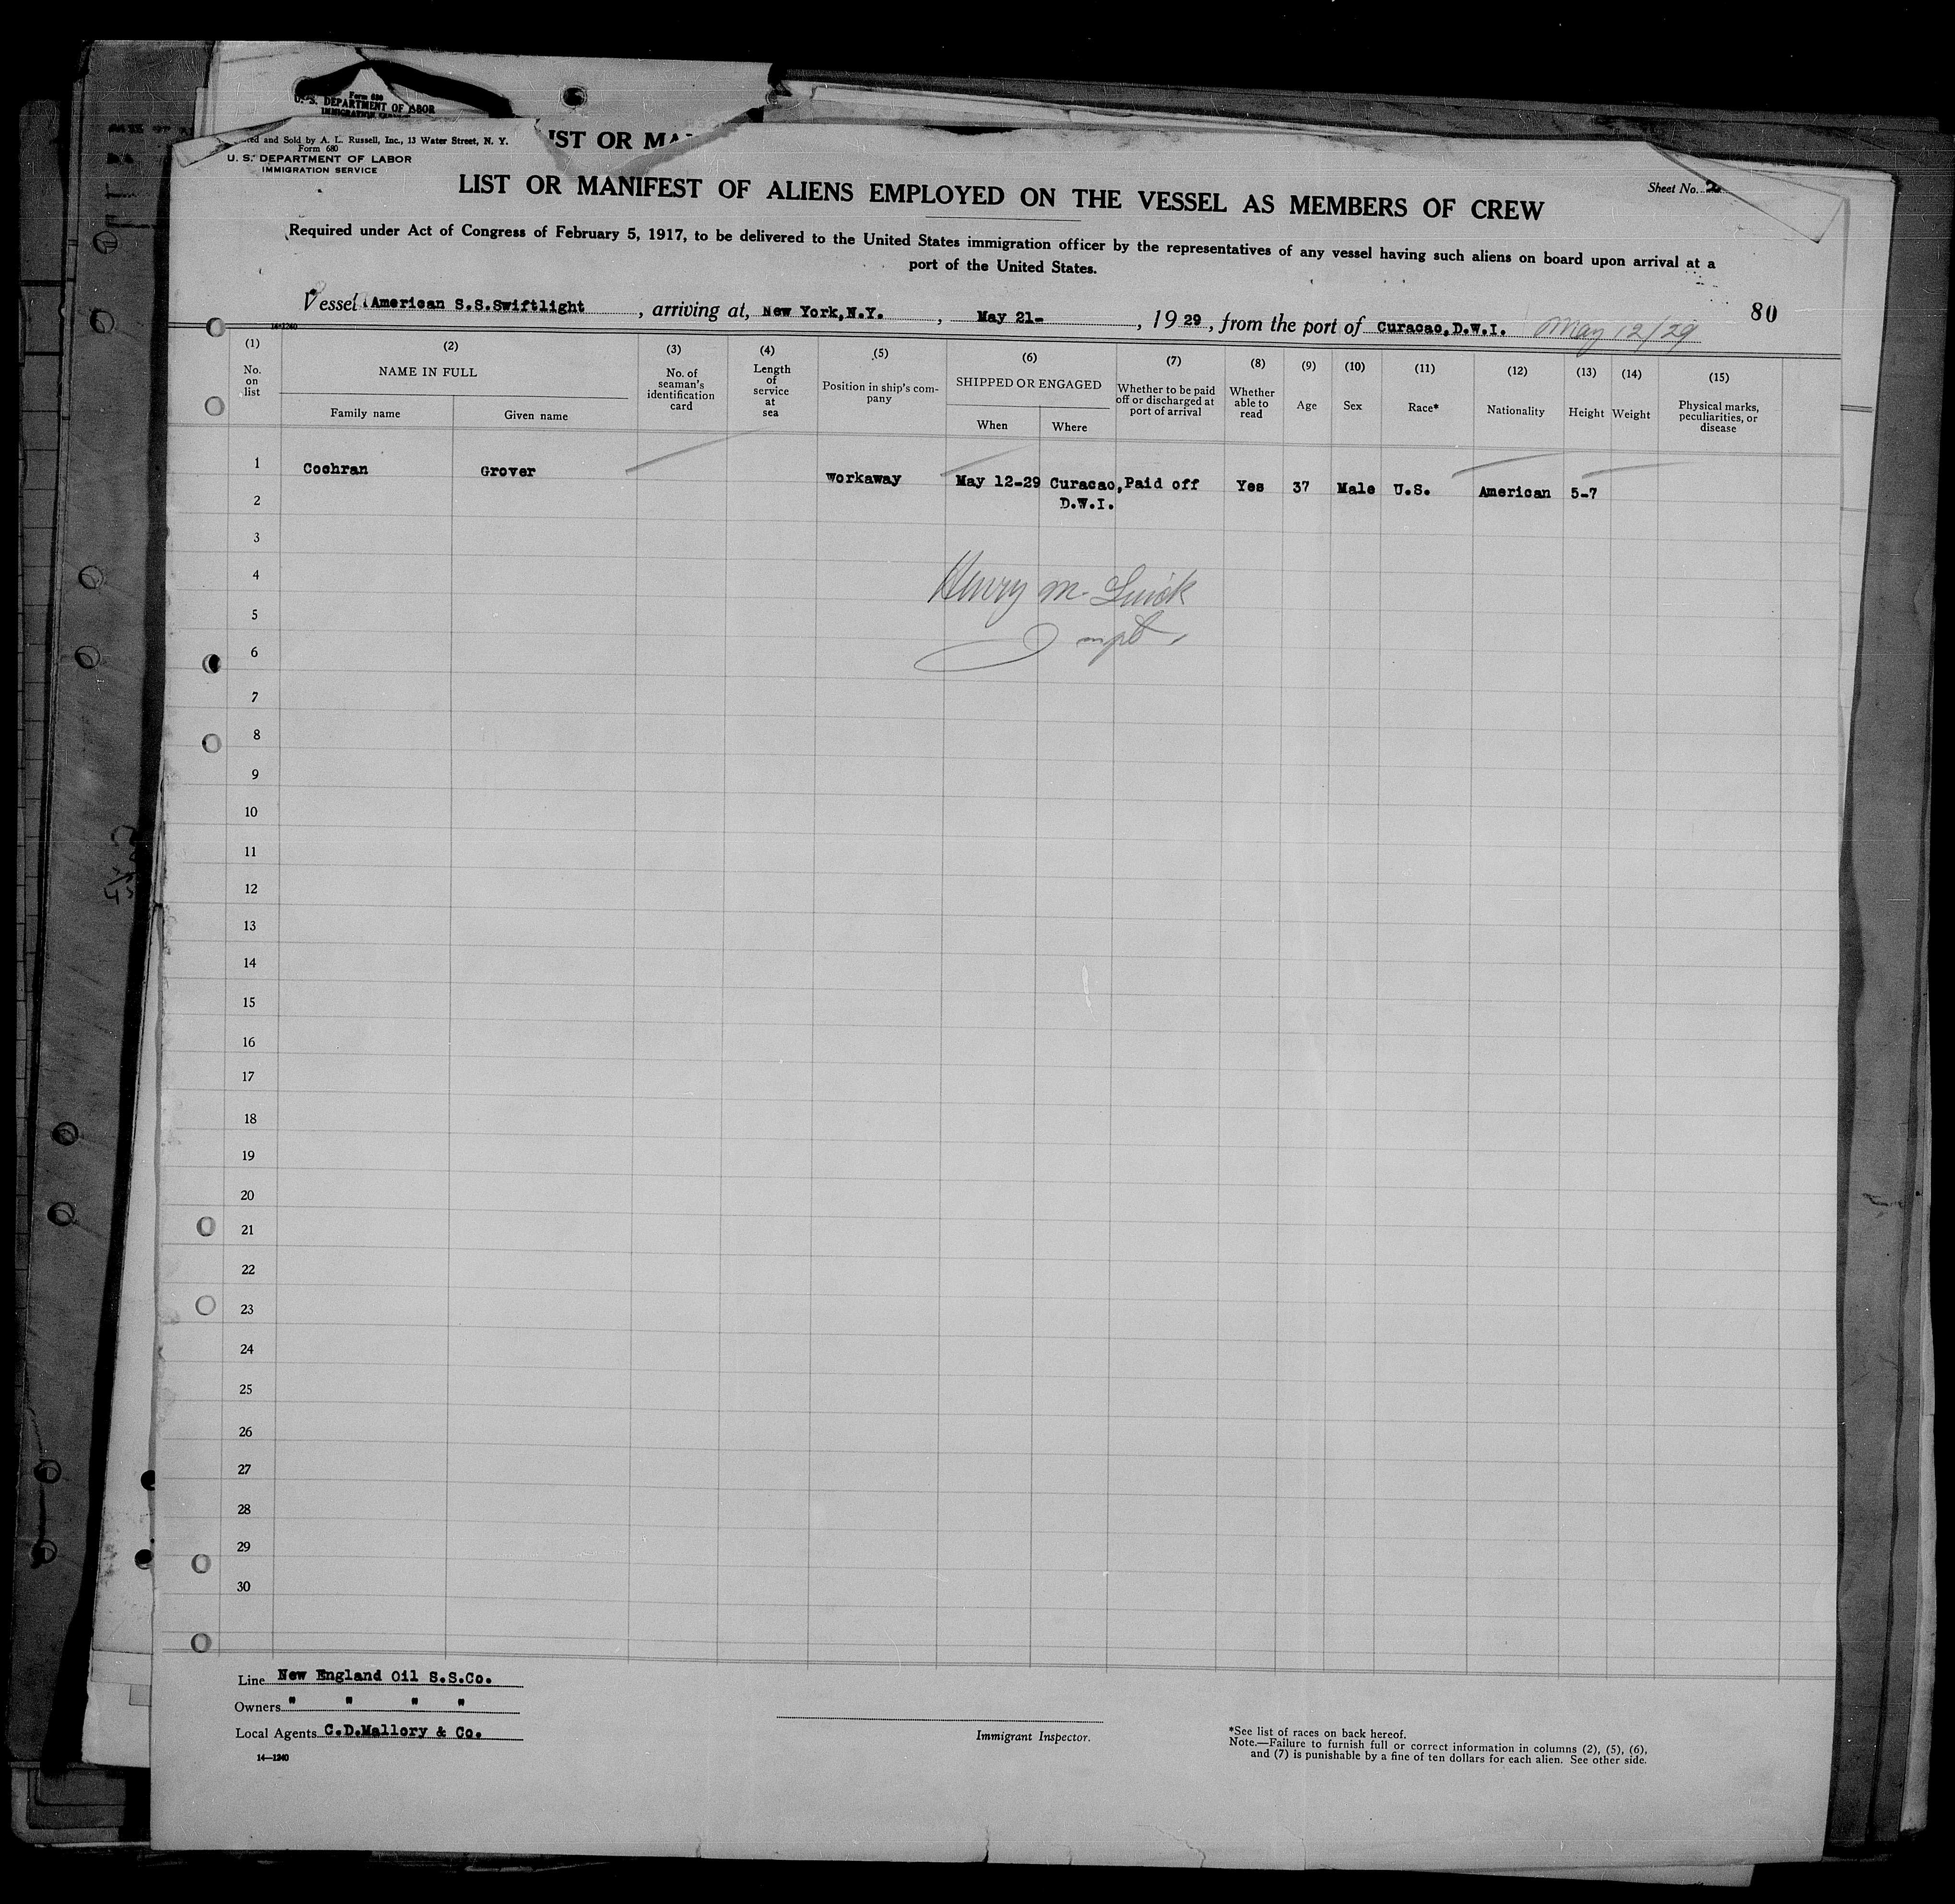 Form 680
U. S. DEPARTMENT OF LABOR
IMMIGRATION SERVICE
IST OR MA
ed and Sold by A. L. Russell, Inc., 13 Water Street, N. Y.
Form 680
U. S. DEPARTMENT OF LABOR
IMMIGRATION SERVICE
Sheet No. 2
LIST OR MANIFEST OF ALIENS EMPLOYED ON THE VESSEL AS MEMBERS OF CREW
Required under Act of Congress of February 5, 1917, to be delivered to the United States immigration officer by the representatives of any vessel having such aliens on board upon arrival at a
port of the United States.
80
Vessel American S.S.Swiftlight, arriving at, New York,N.Y., May 21-, 1929, from the port of Curacao,D.W.I. May 12/29
14-1240
(1) (2) (3) (4) (5) (6) (7) (8) (9) (10) (11) (12) (13) (14) (15)
No. on list
NAME IN FULL
Family name Given name
No. of seaman's identification card
Length of service at sea
Position in ship's com-pany
SHIPPED OR ENGAGED
When Where
Whether to be paid off or discharged at port of arrival
Whether able to read
Age Sex Race* Nationality Height Weight
Physical marks, peculiarities, or disease
1 Cochran Grover workaway May 12-29 Curacao, Paid off Yes 37 Male U.S. American 5-7
2 D.W.I.
3
4 Henry M.
5
6
7
8
9
10
11
12
13
14
15
16
17
18
19
20
21
22
23
24
25
26
27
28
29
30
Line New England Oil S.S.Co.
Owners " " " "
Local Agents C.D.Mallory & Co.
14—1240
Immigrant Inspector.
*See list of races on back hereof.
Note.—Failure to furnish full or correct information in columns (2), (5), (6),
and (7) is punishable by a fine of ten dollars for each alien. See other side.